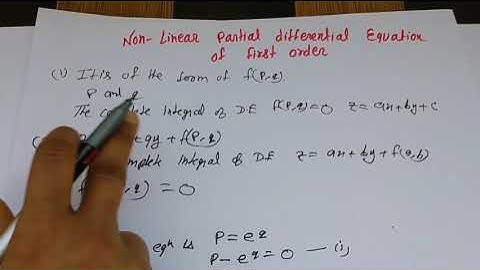 Non-Linear Partial differential Equation
of first order
(1) It is of the form of f(P,q)
P and q
The complete Integral of D.E f(P,q)=0 z=ax+by+c
qy + f(P,q)
Integral of D.E z = ax+by+f(a,b)
) = 0
eqn is P = e^q
P - e^q = 0 — (i)